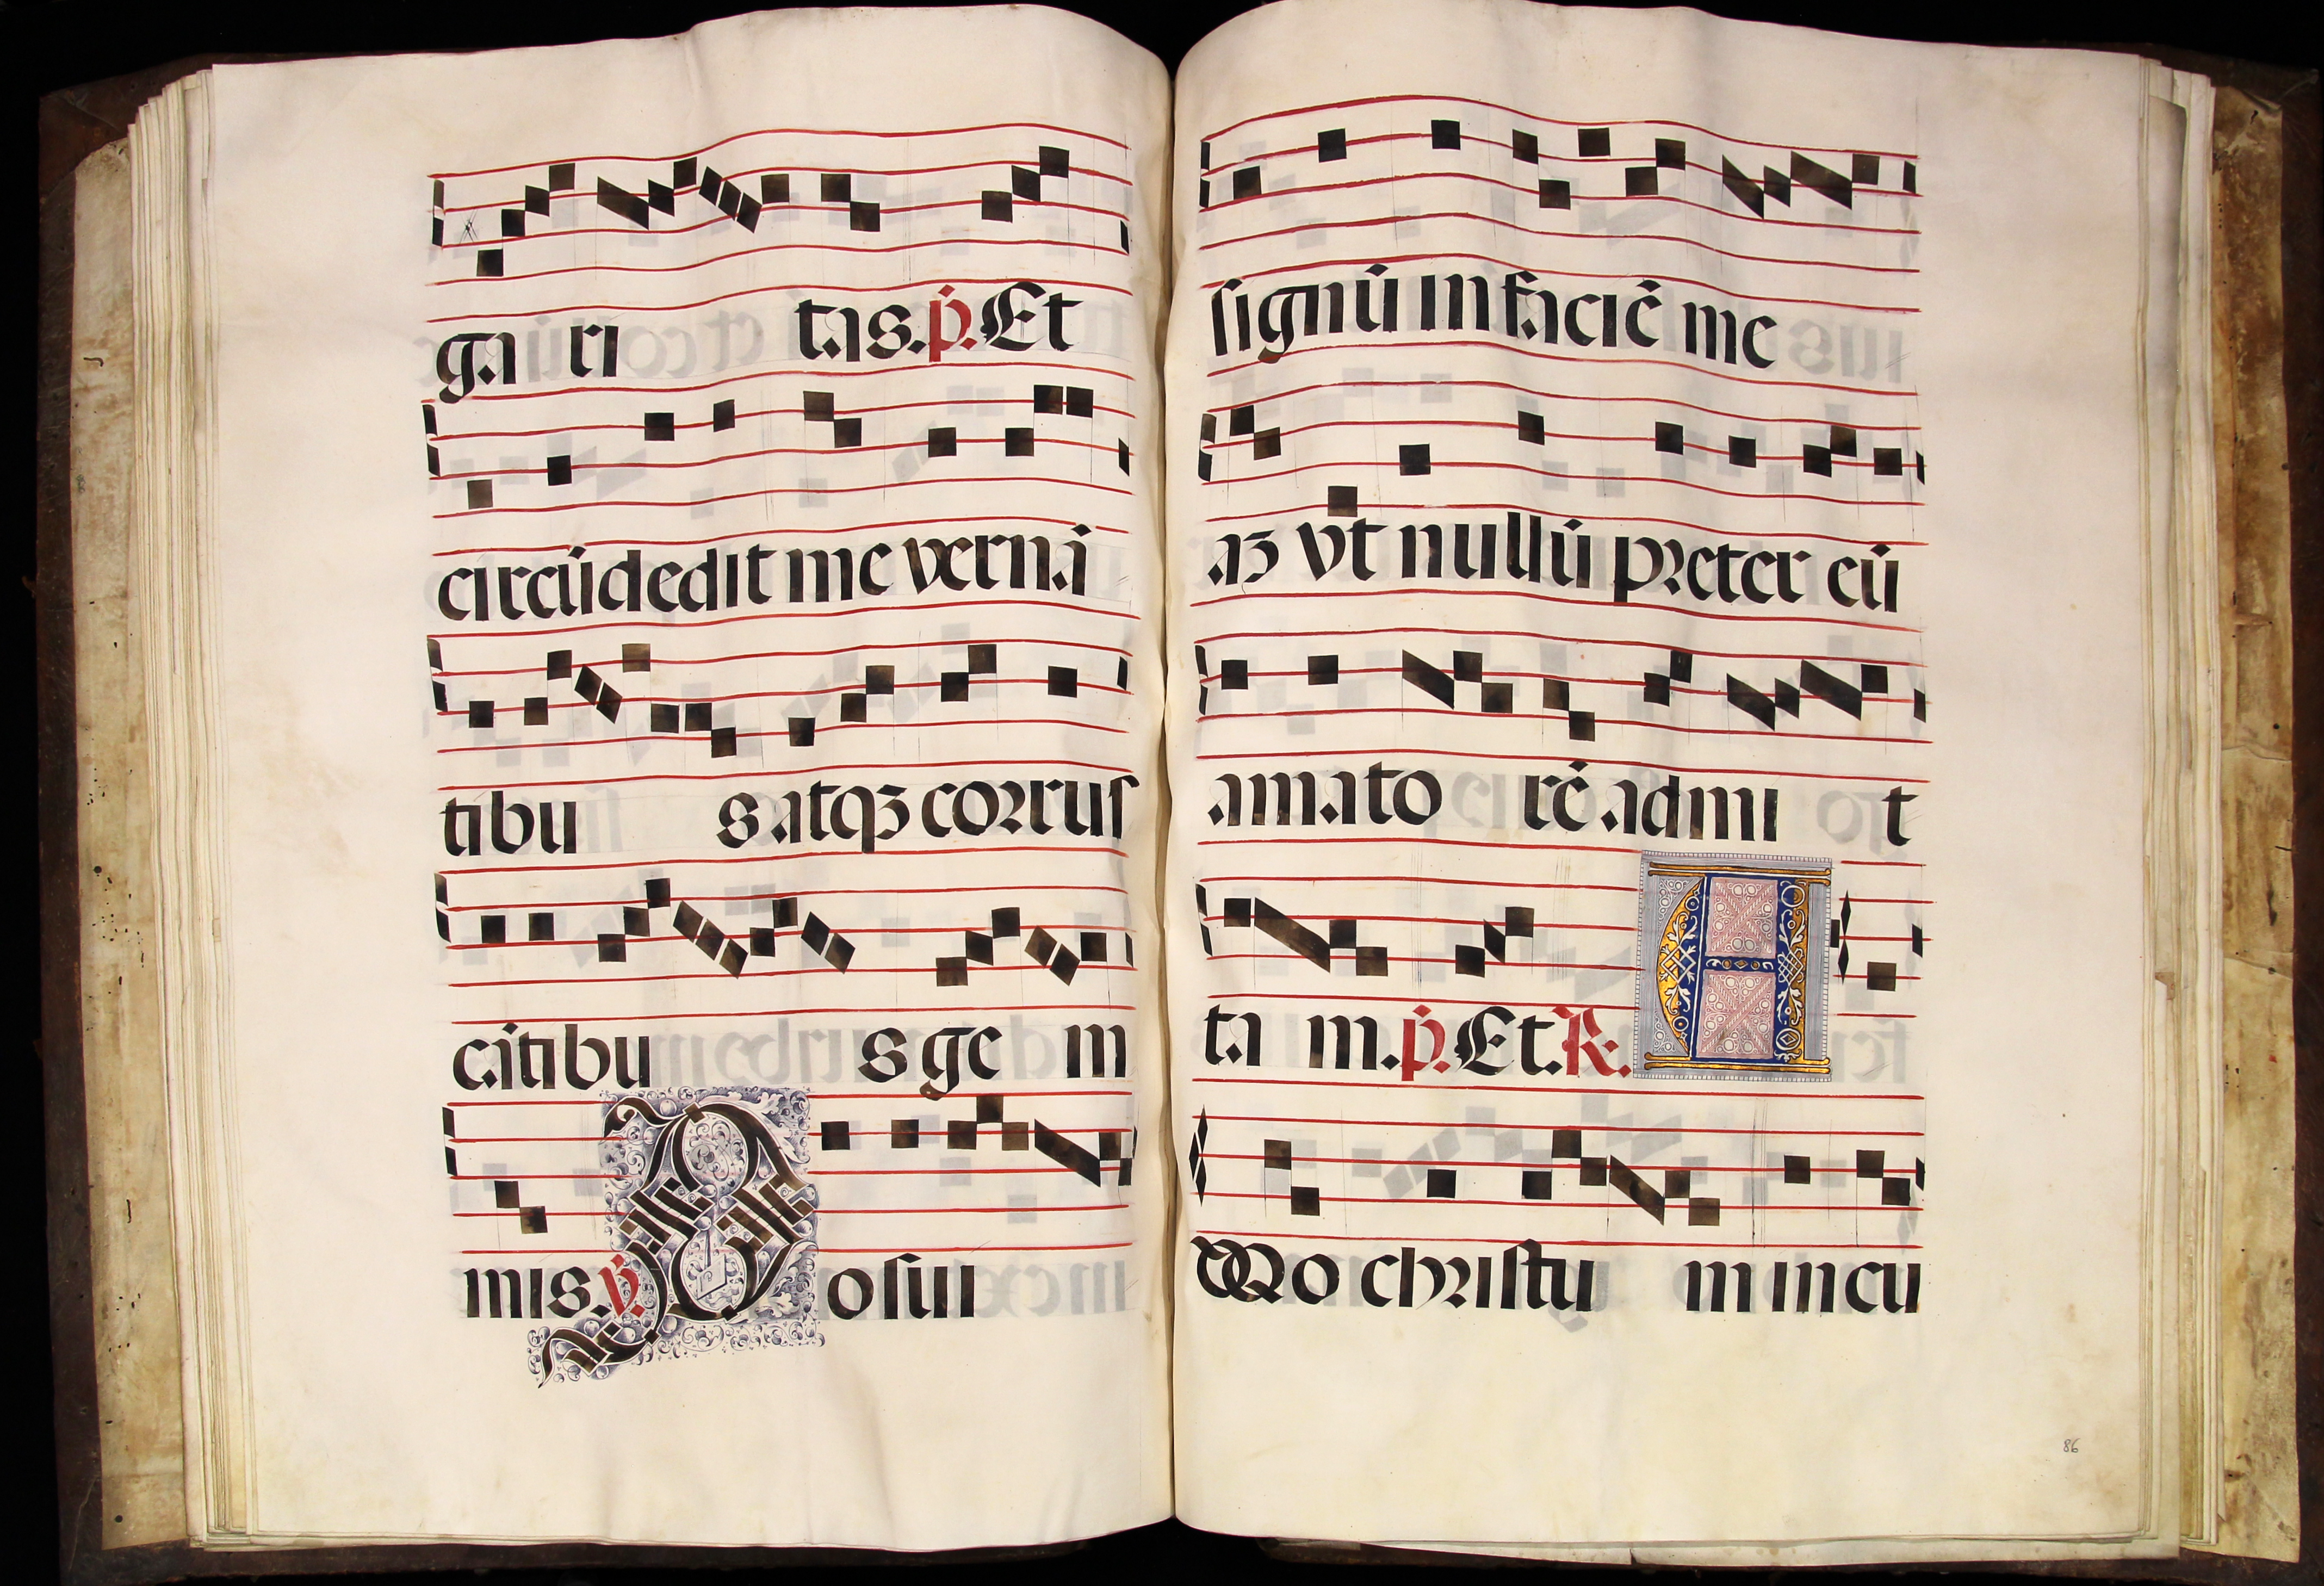 gari tas. p̄. Et
circūdedit me vernā
tibu s atqꝫ corrus
cātibu s ge m
mis. ℣. Posui
signū in faciē me
aꝫ vt nullū preter eū
amato rē admi t
ta m. p̄. Et. ℟. A
Mo christu m in cu
86